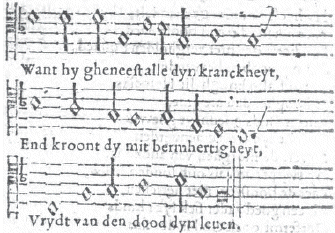 Want hy gheneeſt alle dyn kranckheyt,
End kroont dy mit bermhertigheyt,
Vrydt van den dood dyn leuen,